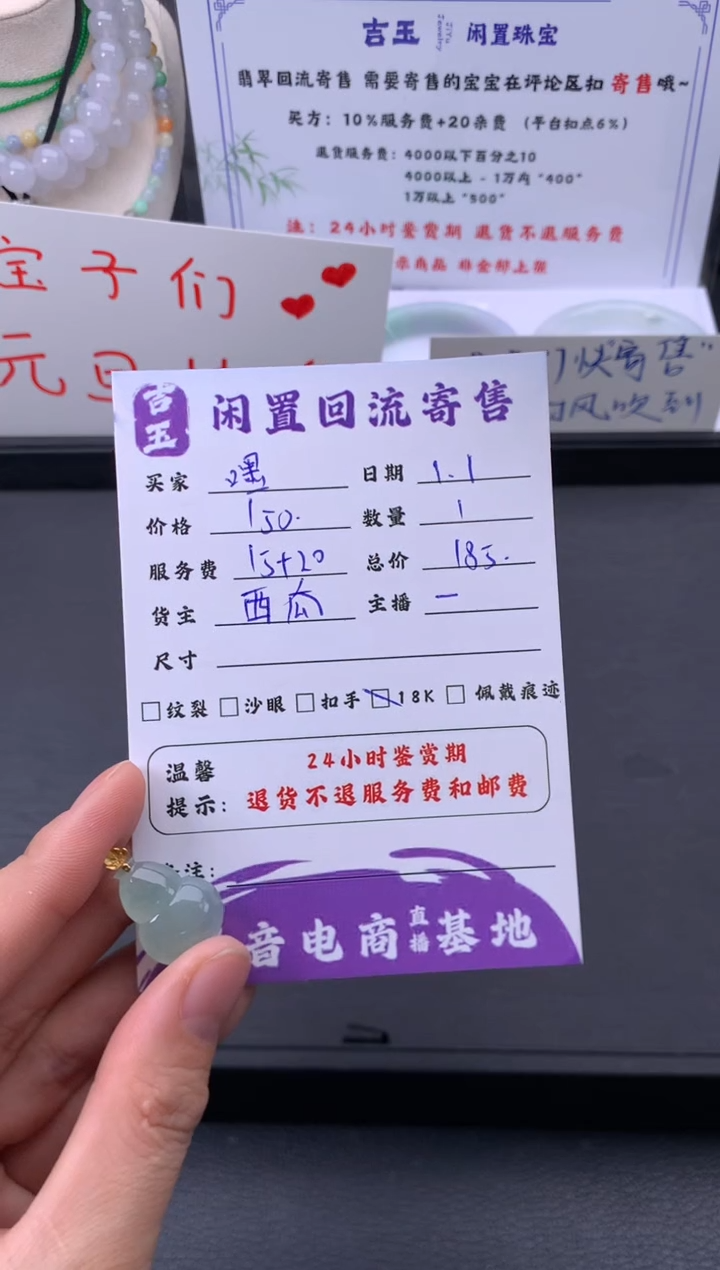 吉玉 闲置珠宝
翡翠回流寄售 需要寄售的宝宝在评论区扣 寄售 哦~
买方：10%服务费+20杂费 （平台扣点6%）
退货服务费：4000以下百分之10
4000以上 - 1万内 “400”
1万以上 “500”
注：24小时鉴赏期 退货不退服务费
商品 非全部上架
宝子们
元旦
寄售”
风吹到
吉玉 闲置回流寄售
买家 嘿 日期 1.1
价格 150. 数量 1
服务费 15+20 总价 185.
货主 西瓜 主播 一
尺寸
纹裂 沙眼 扣手 18K 佩戴痕迹
温馨提示： 24小时鉴赏期
退货不退服务费和邮费
注：
音电商直播基地